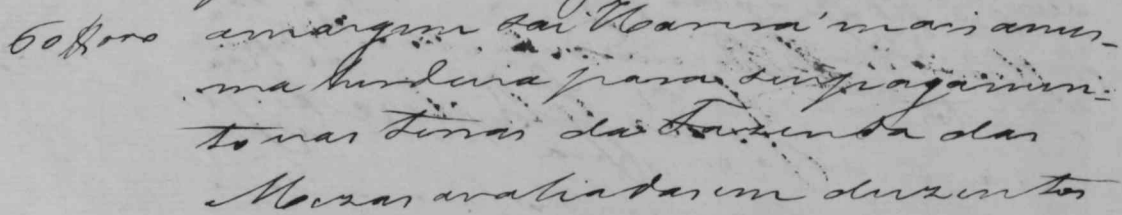 60$000 a margem sai Haverá mais a mes-
ma herdeira para seu pagamen-
to nas terras da Fazenda das
Mezas avaliadas em duzentos